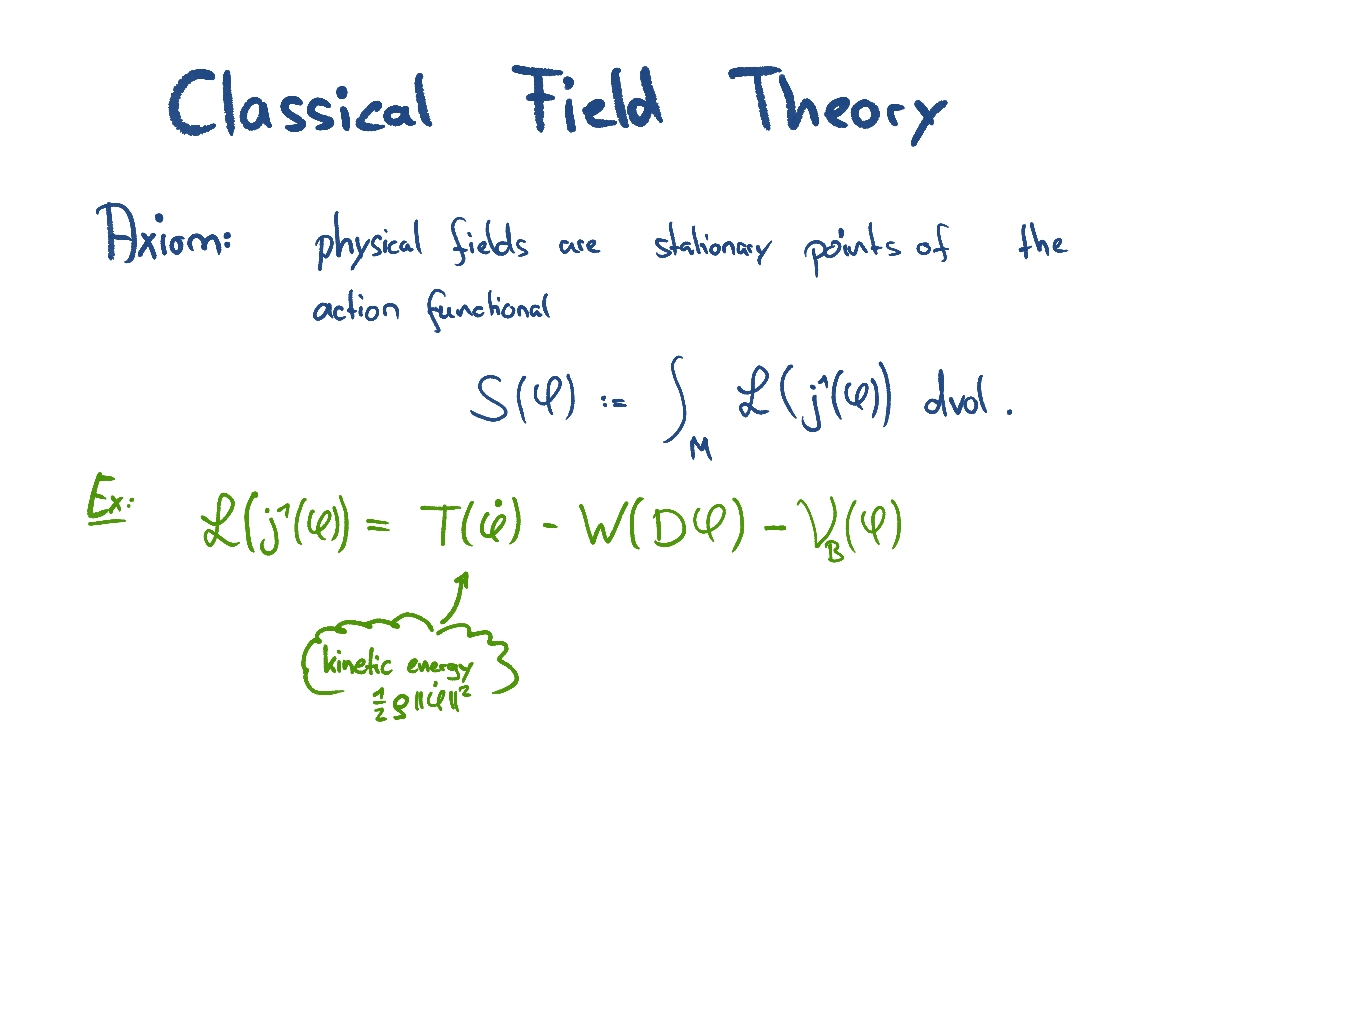 Classical Field Theory
Axiom: physical fields are stationary points of the
action functional
S(φ) := ∫_M ℒ(j¹(φ)) dvol.
Ex: ℒ(j¹(φ)) = T(φ̇) - W(Dφ) - V_B(φ)
kinetic energy
½ ρ ||φ̇||²